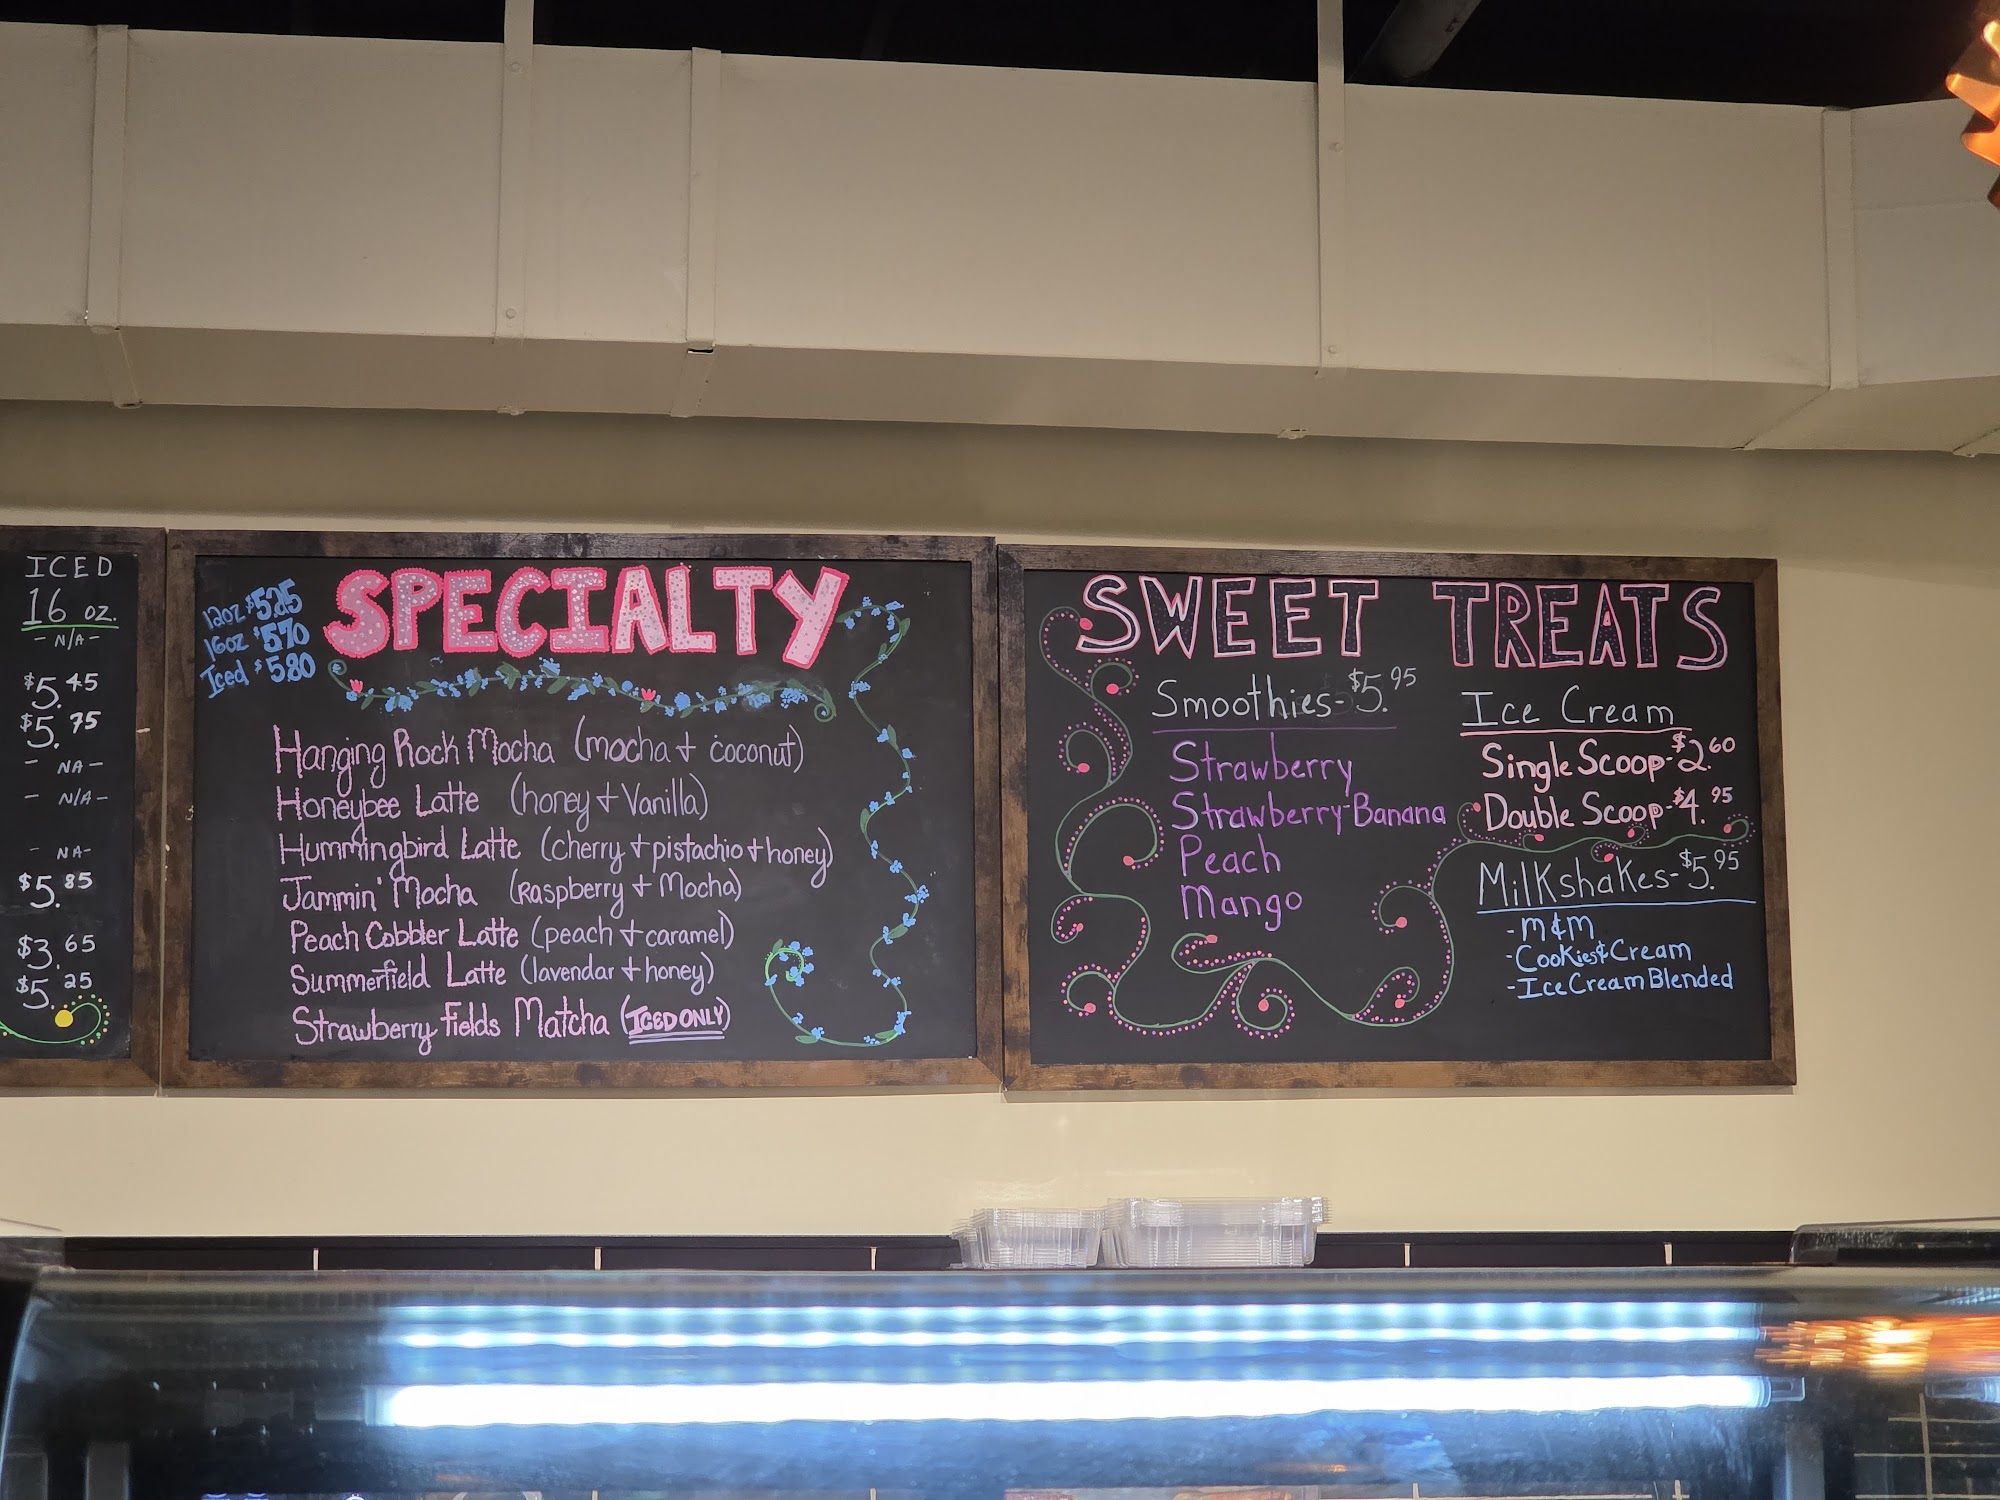 ICED
16 oz.
- N/A -
$5.45
$5.75
- NA -
- N/A -
- NA -
$5.85
$3.65
$5.25
SPECIALTY
12oz $5.25
16oz $5.70
Iced $5.80
Hanging Rock Mocha (mocha + coconut)
Honeybee Latte (honey + Vanilla)
Hummingbird Latte (cherry + pistachio + honey)
Jammin' Mocha (Raspberry + Mocha)
Peach Cobbler Latte (peach + caramel)
Summerfield Latte (lavendar + honey)
Strawberry fields Matcha (ICED ONLY)
SWEET TREATS
Smoothies - $5.95
Strawberry
Strawberry-Banana
Peach
Mango
Ice Cream
Single Scoop - $2.60
Double Scoop - $4.95
Milkshakes - $5.95
- M&M
- Cookies & Cream
- Ice Cream Blended